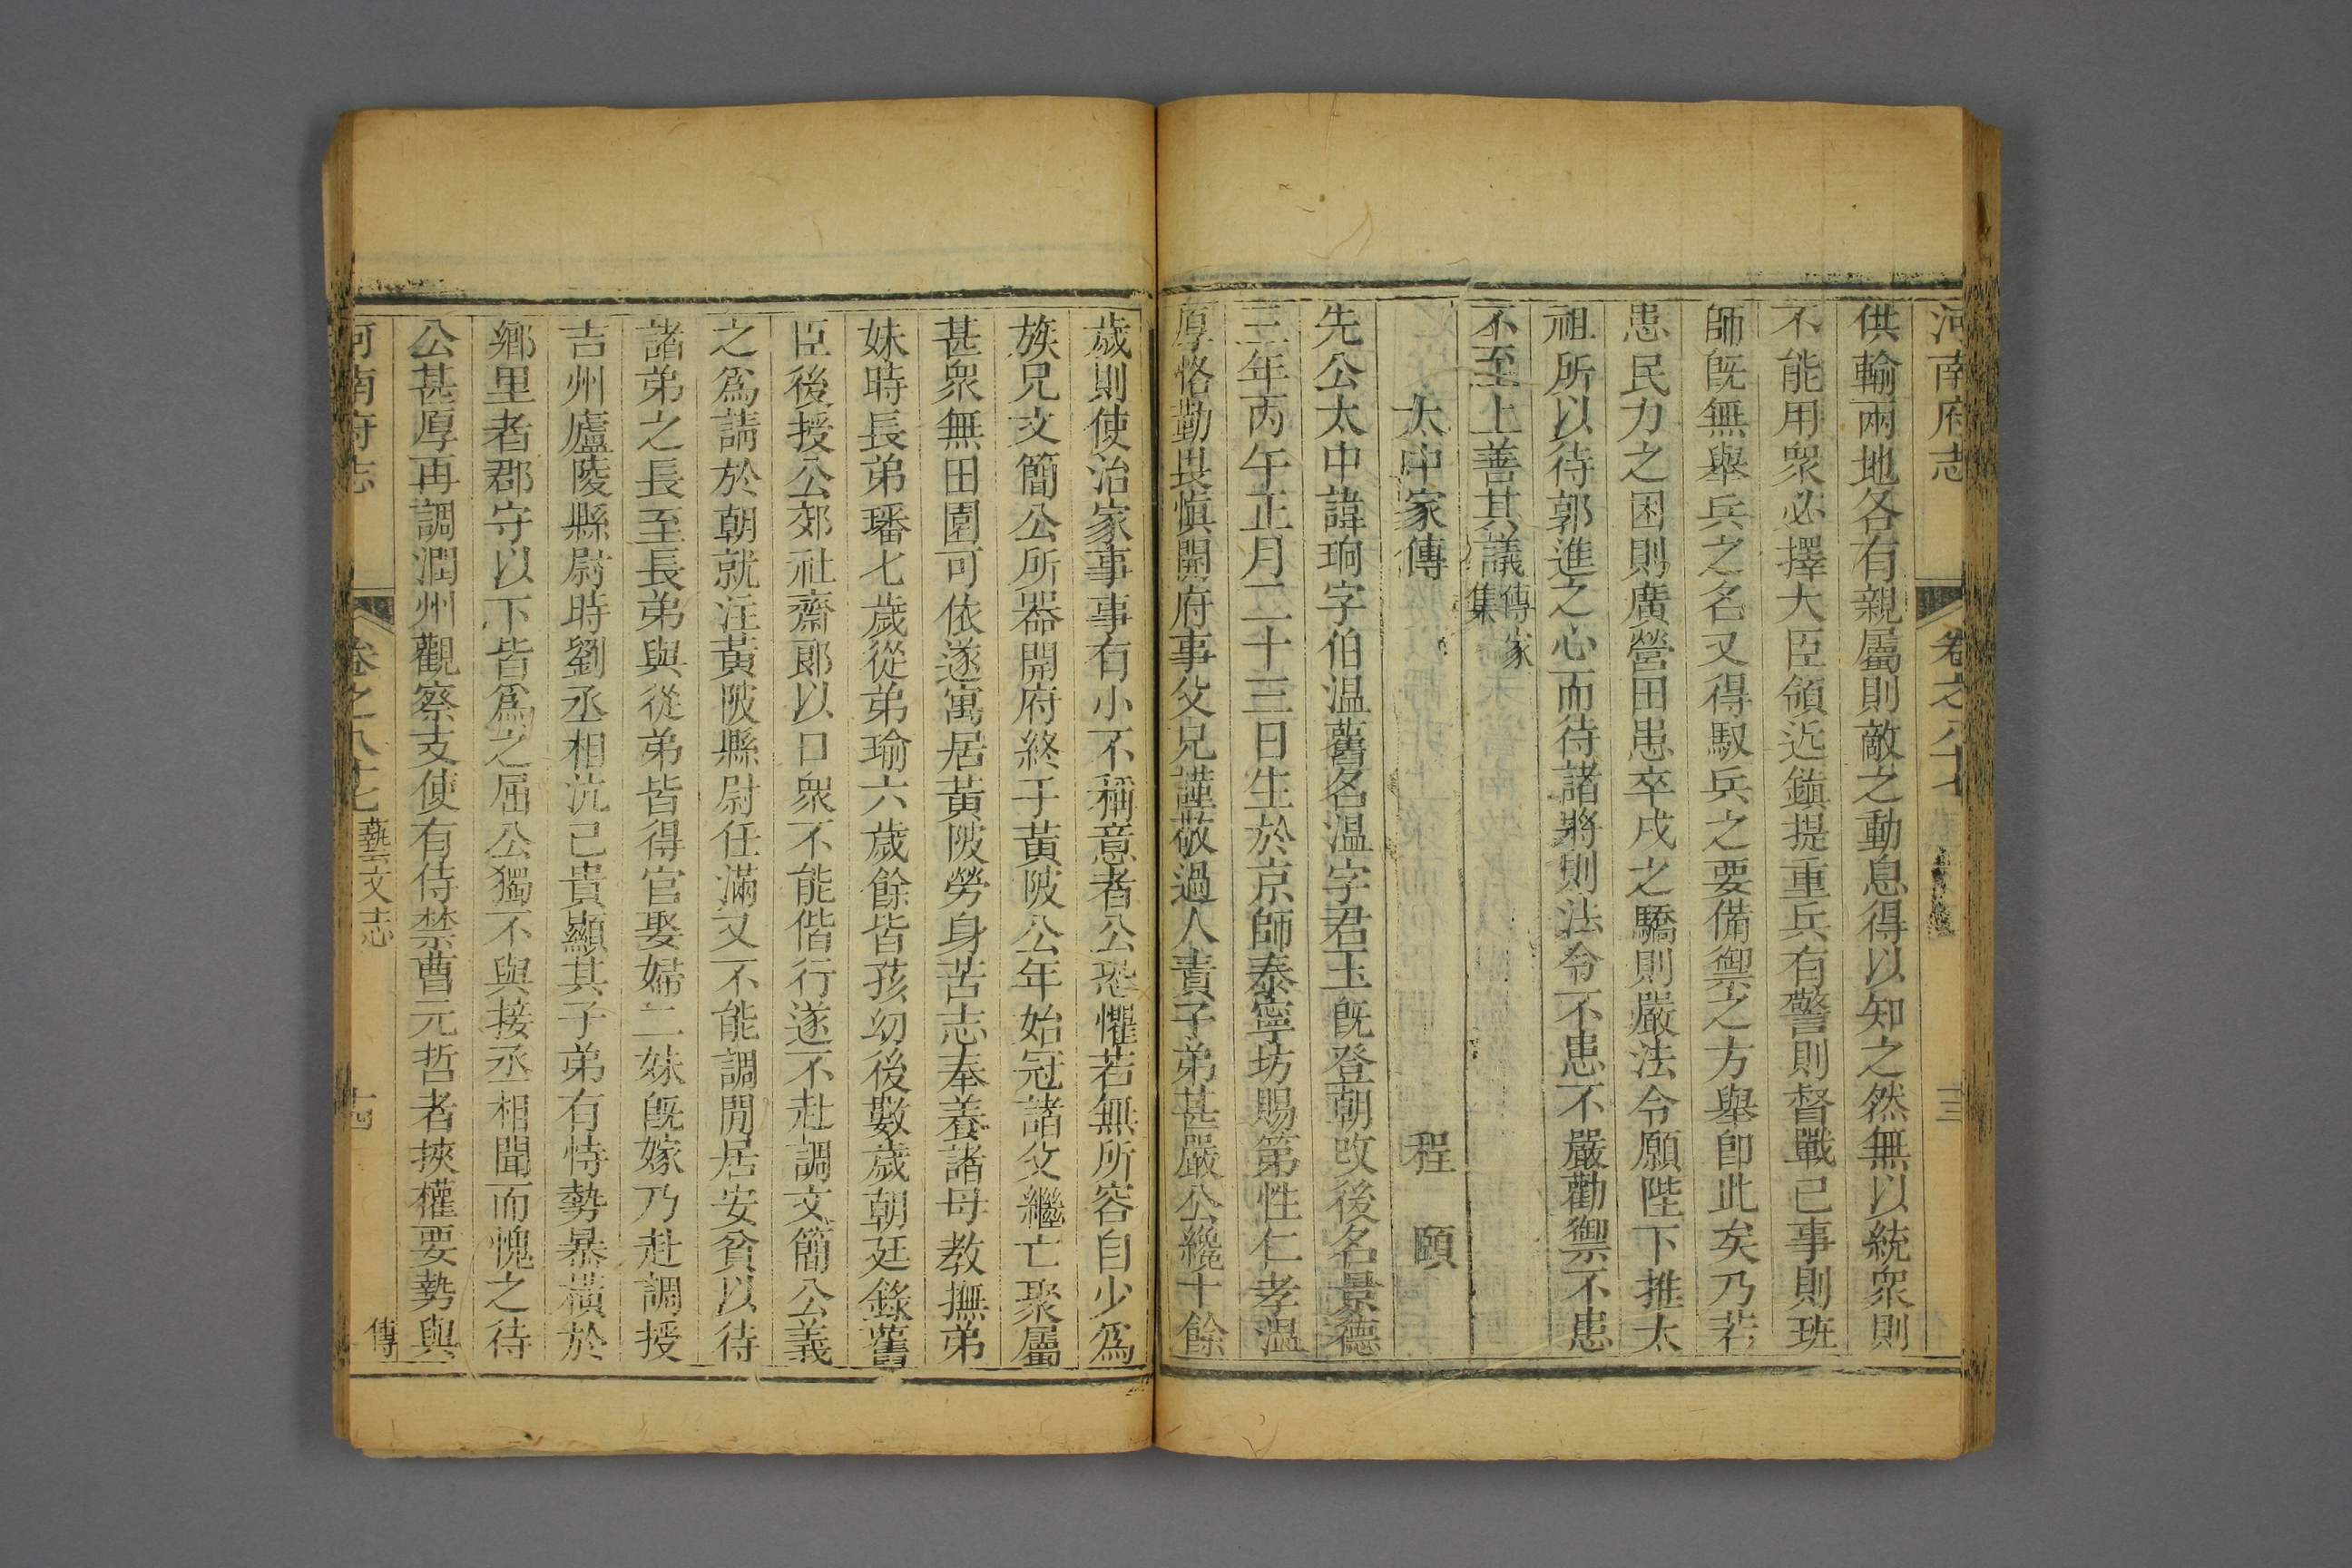 河南府志 卷之八十七 十三
供輸兩地各有親屬則敵之動息得以知之然無以統衆則
不能用衆必擇大臣領近鎮提重兵有警則督戰已事則班
師既無舉兵之名又得馭兵之要備禦之方舉卽此矣乃若
患民力之困則廣營田患卒戍之驕則嚴法令願陛下推太
祖所以待郭進之心而待諸將則法令不患不嚴勸禦不患
不至上善其議傳家集
太中家傳 程頤
先公太中諱珦字伯温舊名温字君玉既登朝改後名景德
三年丙午正月二十三日生於京師泰寧坊賜第性仁孝温
厚恪勤畏慎開府事父兄謹敬過人責子弟甚嚴公纔十餘
歲則使治家事事有小不稱意者公恐懼若無所容自少爲
族兄文簡公所器開府終于黃陂公年始冠諸父繼亡聚屬
甚衆無田園可依遂寓居黃陂勞身苦志奉養諸母教撫弟
妹時長弟璠七歲從弟瑜六歲餘皆孩幼後數歲朝廷錄舊
臣後授公郊社齋郎以口衆不能偕行遂不赴調文簡公義
之爲請於朝就注黃陂縣尉任滿又不能調閒居安貧以待
諸弟之長至長弟與從弟皆得官娶婦二妹既嫁乃赴調授
吉州廬陵縣尉時劉丞相沆已貴顯其子弟有恃勢暴橫於
鄉里者郡守以下皆爲之屈公獨不與接丞相聞而愧之待
公甚厚再調潤州觀察支使有侍禁曹元哲者挾權要勢與
河南府志 卷之八十七 藝文志 十四 傳